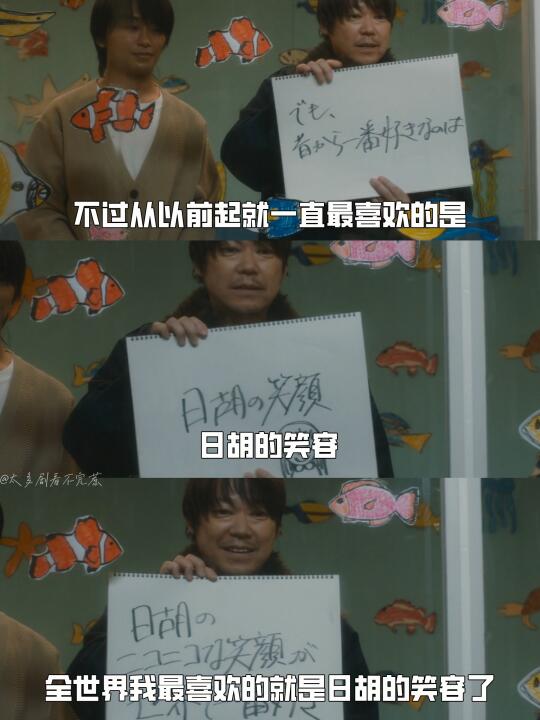 でも、
昔から一番好きなのは
不过从以前起就一直最喜欢的是
日胡の笑顔
日胡的笑容
@太多剧看不完荔
日胡の
ニコニコな笑顔が
全世界我最喜欢的就是日胡的笑容了